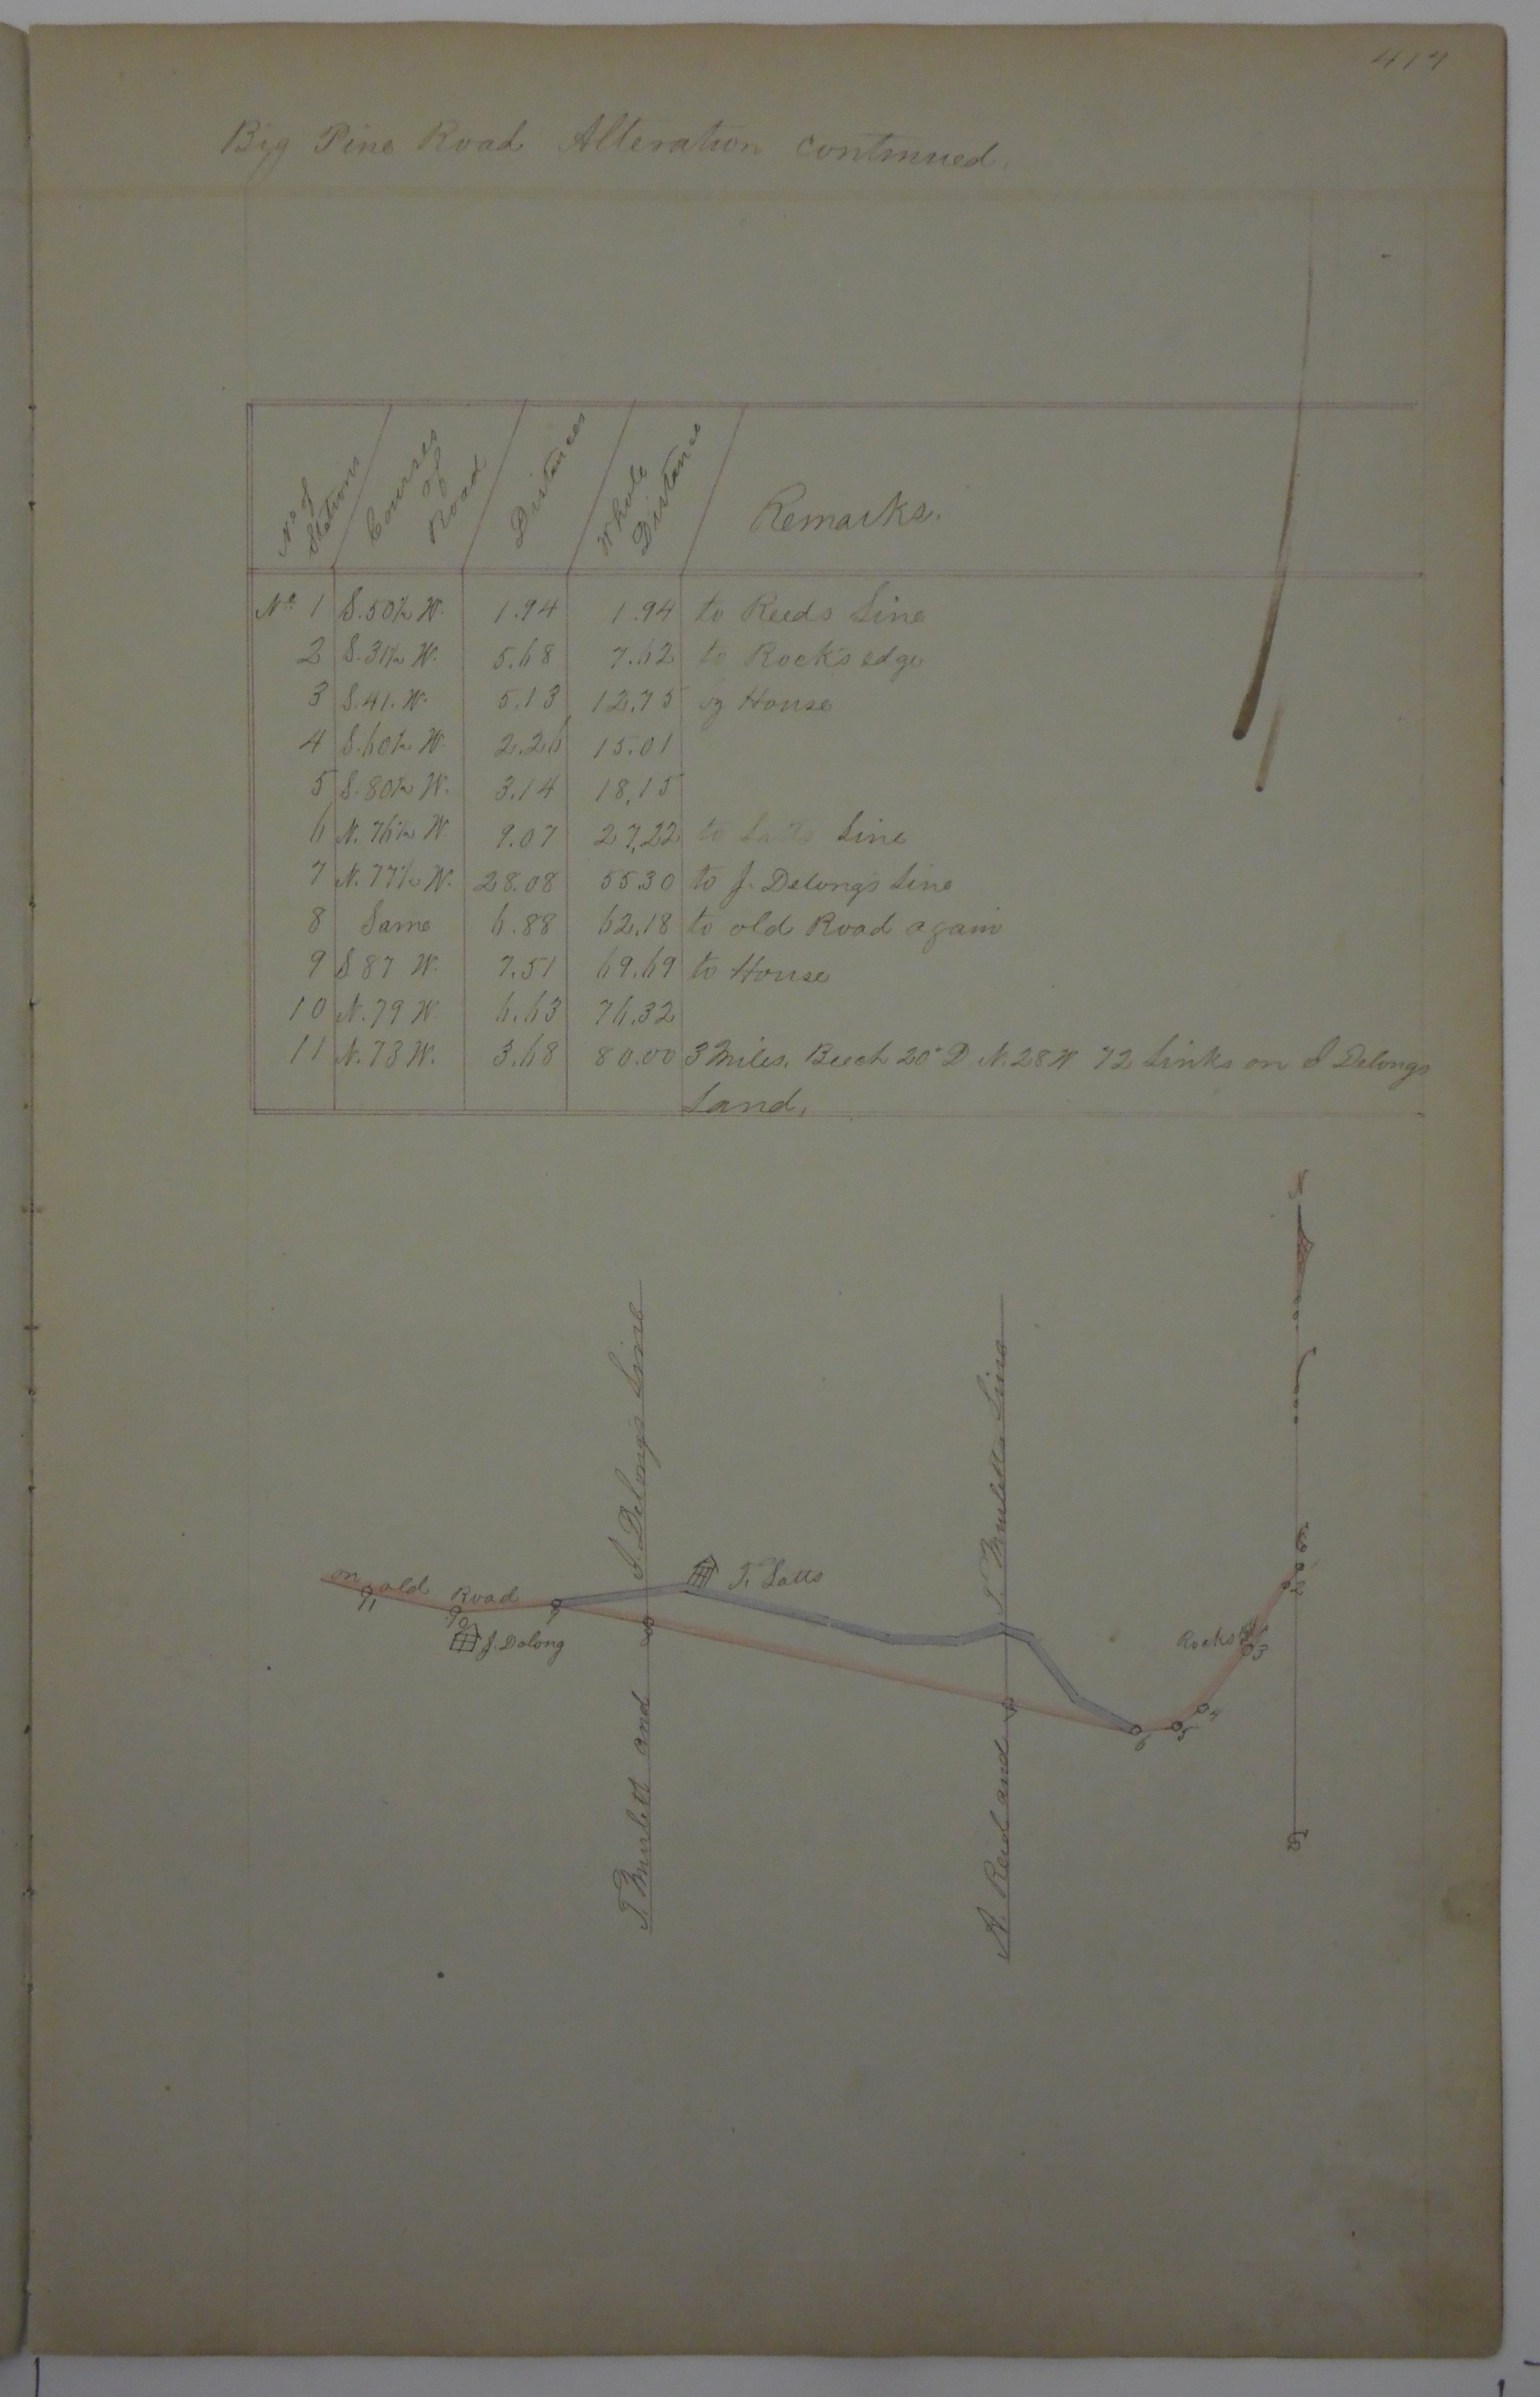 417
Big Pine Road Alteration continued.
No of Stations Courses of Road Distances Whole Distance Remarks.
No. 1 S.50½ W. 1.94 1.94 to Reeds Line
2 S.31½ W. 5.68 7.62 to Rocks edge
3 S.41. W. 5.13 12.75 House
4 S.60½ W. 2.26 15.01
5 S.80½ W. 3.14 18,15
6 N.76½ W 9.07 27,22 to Latts Line
7 N.77½ W. 28.08 55.30 to J. Delong's Line
8 Same 6.88 62.18 to old Road again
9 S 87 W. 7.51 69.69 to House
10 N.79 W. 6.63 76.32
11 N.73 W. 3.68 80.00 3 Miles. Beech 20" D. N.28 W 72 Links on J Delongs
Land.
T. Murlett and J. Delongs Line
R. Reed and T. Murletts Line
T. Latts
on old Road
11
10
9
J. Delong
Rocks
2
3
4
5
6